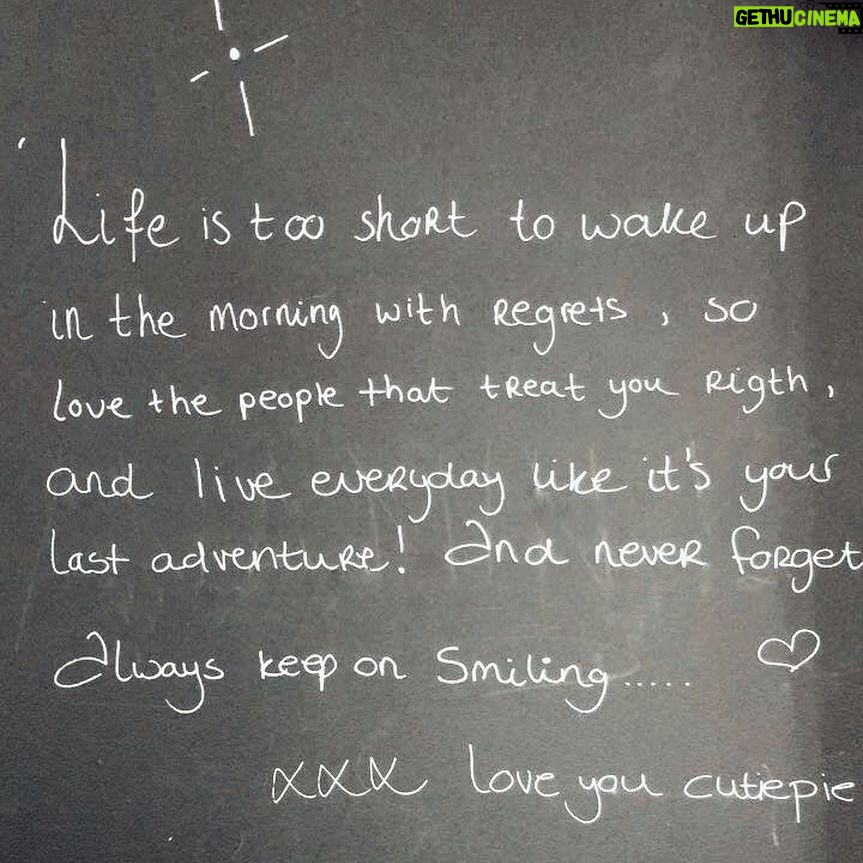 GETHUCINEMA
Life is too short to wake up
in the morning with regrets, so
love the people that treat you rigth,
and live everyday like it's your
last adventure! And never forget
Always keep on smiling.....
xxx love you cutiepie